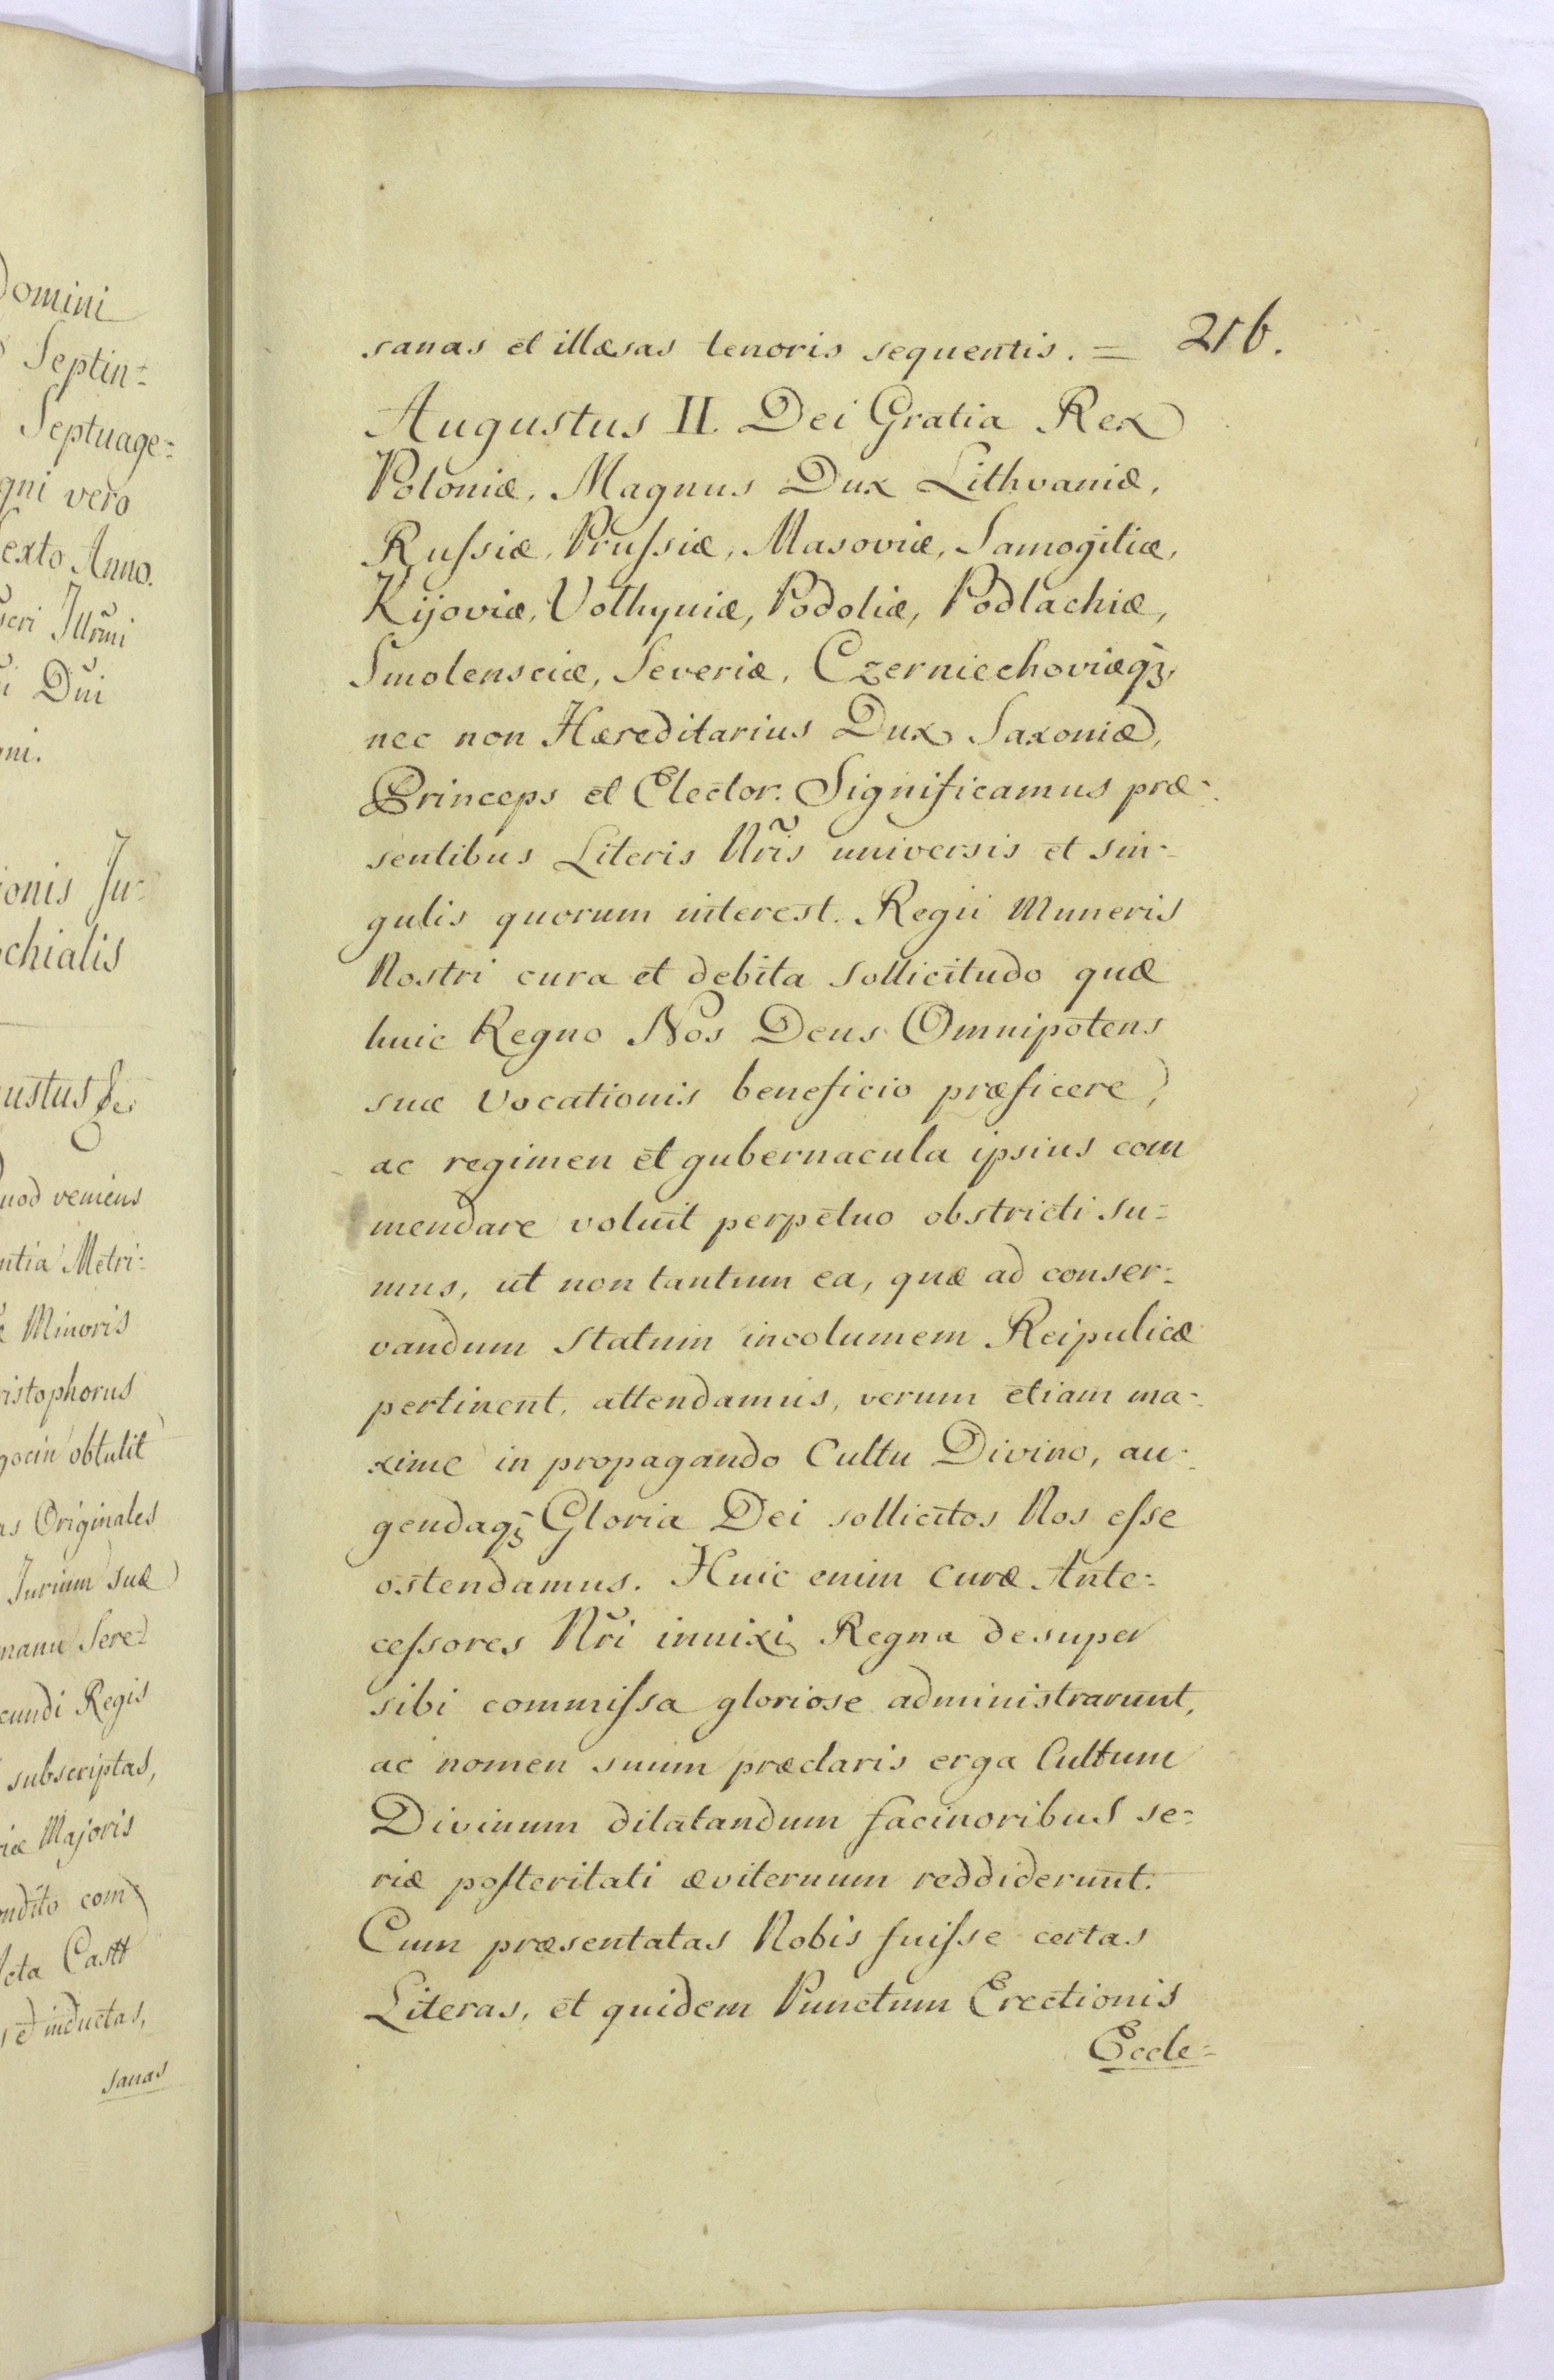 Domini
Septin=
Septuage=
gni vero
exto Anno.
Dñi
ni.
ionis Ju=
chialis
ustus
uod veniens
ntia Metri=
Minoris
ristophorus
obtulit
as Originales
Jurium suæ
manu Sere=
cundi Regis
subscriptas,
riæ Majoris
ondito com
cta Castr
inductas,
sanas
216.
sanas et illæsas tenoris sequentis. =
Augustus II. Dei Gratia Rex
Poloniæ, Magnus Dux Lithvaniæ,
Rufsiæ, Prufsiæ, Masoviæ, Samogitiæ,
Kijoviæ, Volhyniæ, Podoliæ, Podlachiæ,
Smolensciæ, Severiæ, Czerniechoviæq̃,
nec non Hæreditarius Dux Saxoniæ,
Princeps et Elector. Significamus præ=
sentibus Literis Nr̃is universis et sin=
gulis quorum interest. Regii Muneris
Nostri cura et debita sollicitudo quæ
huic Regno Nos Deus Omnipotens
suæ vocationis beneficio præficere,
ac regimen et gubernacula ipsius com
mendare voluit perpetuo obstricti su=
mus, ut non tantum ea, quæ ad conser=
vandum statum incolumem Reipulicæ
pertinent, attendamus, verum etiam ma=
xime in propagando Cultu Divino, au=
gendaq̃ Gloria Dei sollicitos Nos efse
ostendamus. Huic enim curæ Ante=
cefsores Nr̃i innixi Regna desuper
sibi commifsa gloriose administrarunt,
ac nomen suum præclaris erga Cultum
Divinum dilatandum facinoribus se=
riæ posteritati æviternum reddiderunt.
Cum præsentatas Nobis fuifse certas
Literas, et quidem Punctum Erectionis
Eccle=